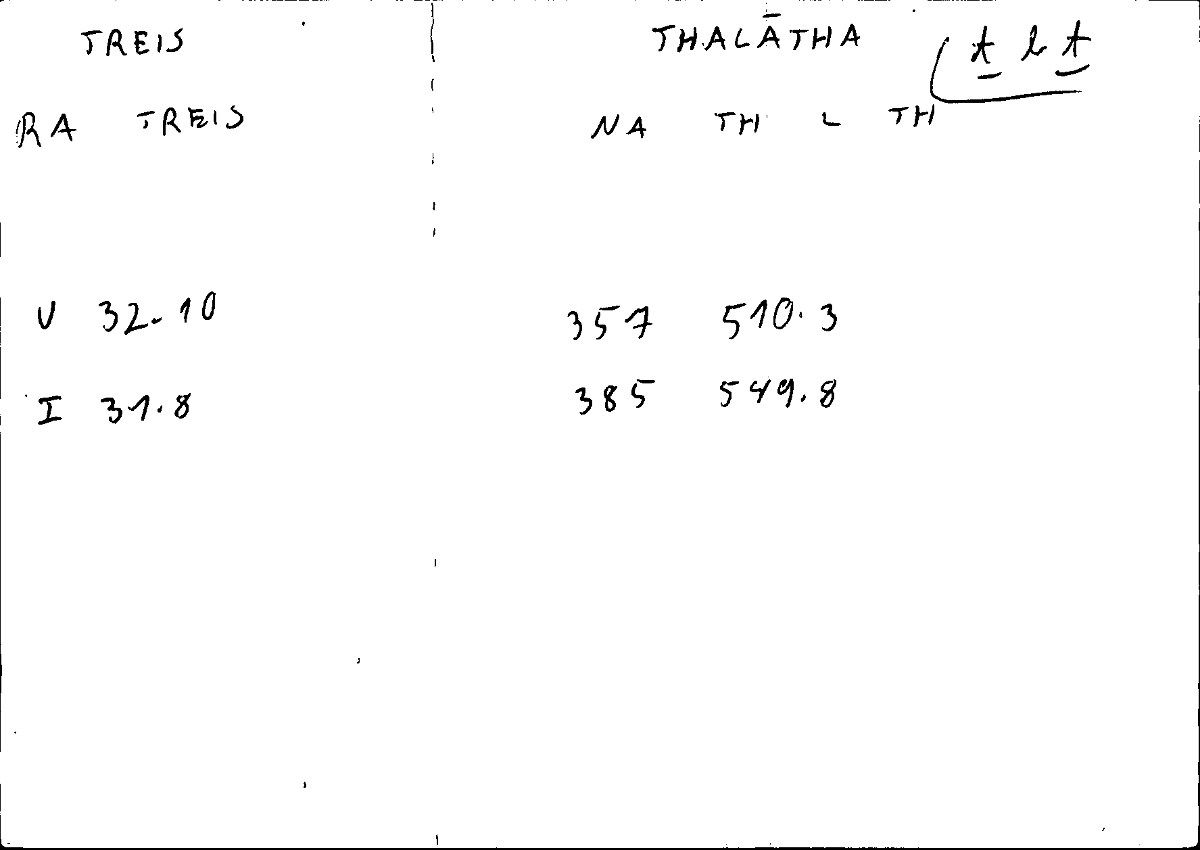 TREIS
RA TREIS
U 32.10
I 31.8
THALĀTHA (t̲ l t̲
NA TH L TH
357 510.3
385 549.8